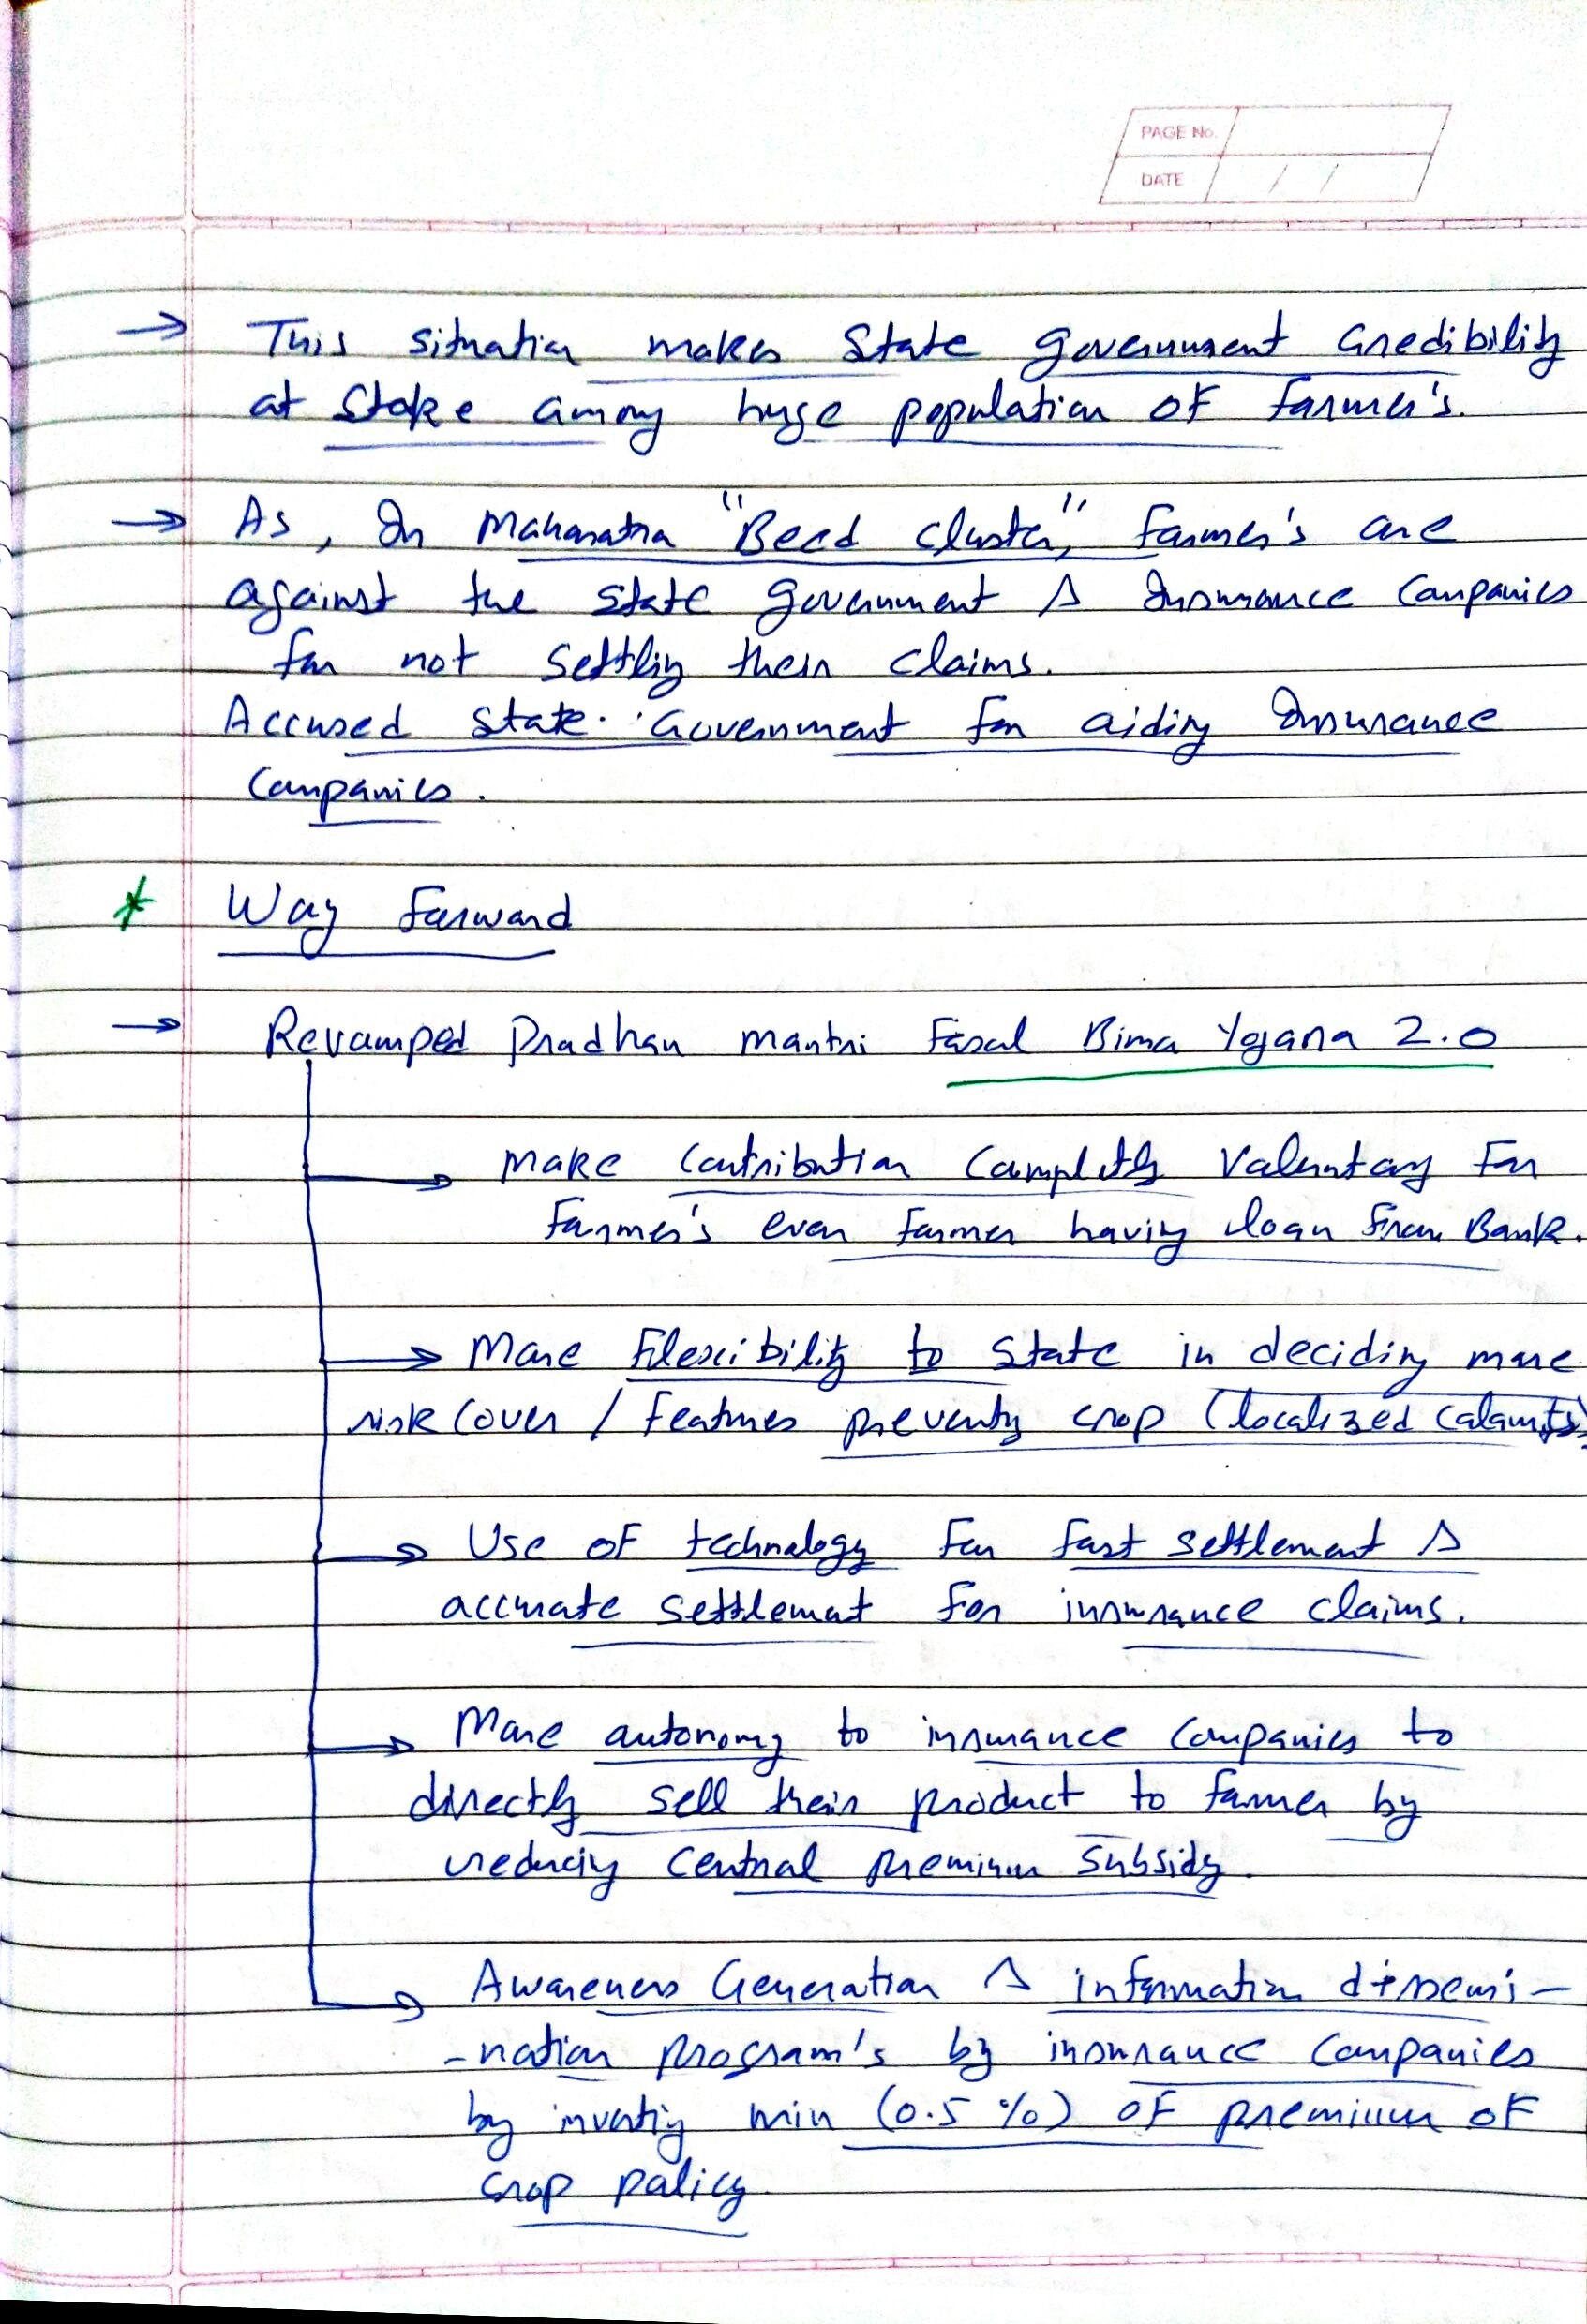 PAGE No.
DATE / /
→ This situation makes State government credibility
at stake among huge population of farmer's.
→ As, In Maharatra "Beed cluster," farmer's are
against the state government & Insurance Companies
for not settling their claims.
Accused State Government for aiding Insurance
Companies.
* Way Forward
→ Revamped Pradhan mantri Fasal Bima Yojana 2.0
→ Make Contribution Completly Valuntary For
Farmer's even farmer having loan from Bank.
→ More Flexibility to State in deciding more
risk cover / features preventg crop (localized calamity)
→ Use of technology for fast settlement &
accurate settlement for insurance claims.
→ More autonomy to insurance companies to
directly sell their product to farmer by
reducing central premium subsidy.
→ Awareness Generation & information dissemi-
-nation program's by insurance Companies
by investig min (0.5 %) of premium of
crop policy.